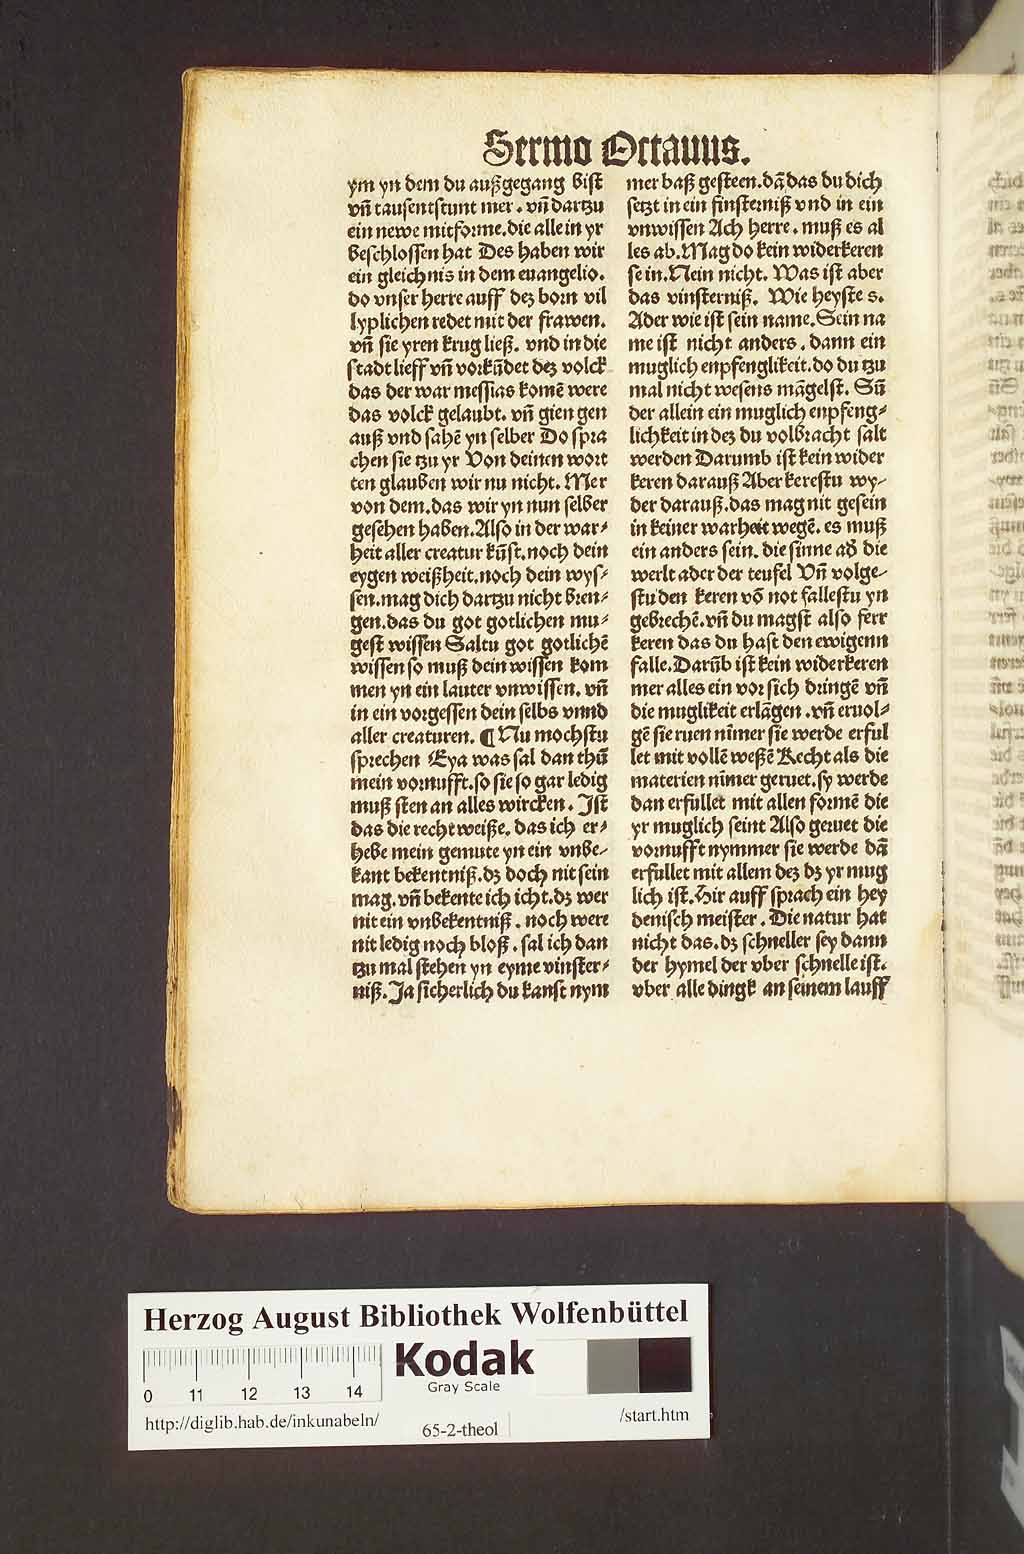 Sermo Octauus.
ym yn dem du außgegang bist
vñ tausentstunt mer. vñ dartzu
ein newe mitforme. die alle in yr
beschlossen hat Des haben wir
ein gleichnis in dem euangelio.
do vnser herre auff dez born vil
lyplichen redet mit der frawen.
vñ sie yren krug ließ. vnd in die
stadt lieff vñ vorkũdet dez volck
das der war messias komẽ were
das volck gelaubt. vñ gien gen
auß vnd sahẽ yn selber Do spra
chen sie tzu yr Von deinen wort
ten glauben wir nu nicht. Mer
von dem. das wir yn nun selber
gesehen haben. Also in der war⸗
heit aller creatur kũst. noch dein
eygen weißheit. noch dein wys⸗
sen. mag dich dartzu nicht bren⸗
gen. das du got gotlichen mu⸗
gest wissen Saltu got gotlichẽ
wissen so muß dein wissen kom
men yn ein lauter vnwissen. vñ
in ein vorgessen dein selbs vnnd
aller creaturen. ¶ Nu mochstu
sprechen Eya was sal dan thũ
mein vornufft. so sie so gar ledig
muß sten an alles wircken. Ist
das die recht weiße. das ich er⸗
hebe mein gemute yn ein vnbe⸗
kant bekentniß. dz doch nit sein
mag. vñ bekente ich icht. dz wer
nit ein vnbekentniß. noch were
nit ledig noch bloß. sal ich dan
tzu mal stehen yn eyme vinster⸗
niß. Ja sicherlich du kanst nym
mer baß gesteen. dã das du dich
setzt in ein finsterniß vnd in ein
vnwissen Ach herre. muß es al
les ab. Mag do kein widerkeren
sein. Nein nicht. Was ist aber
das vinsterniß. Wie heyste s.
Ader wie ist sein name. Sein na
me ist nicht anders. dann ein
muglich enpfenglikeit. do du tzu
mal nicht wesens mãgelst. Sũ
der allein ein muglich enpfeng⸗
lichkeit in dez du volbracht salt
werden Darumb ist kein wider
keren darauß Aber kerestu wy⸗
der darauß. das mag nit gesein
in keiner warheit wegẽ. es muß
ein anders sein. die sinne ad die
werlt ader der teufel Vñ volge⸗
stu den keren võ not fallestu yn
gebrechẽ. vñ du magst also ferr
keren das du hast den ewigenn
falle. Darũb ist kein widerkeren
mer alles ein vor sich dringẽ vñ
die muglikeit erlãgen. vñ eruol⸗
gẽ sie ruen nĩmer sie werde erful
let mit vollẽ weßẽ Recht als die
materien nĩmer geruet. sy werde
dan erfullet mit allen formẽ die
yr muglich seint Also geruet die
vornufft nymmer sie werde dã
erfullet mit allem dez dz yr mug
lich ist. Hir auff sprach ein hey
denisch meister. Die natur hat
nicht das. dz schneller sey dann
der hymel der vber schnelle ist.
vber alle dingk an seinem lauff
Herzog August Bibliothek Wolfenbüttel
Kodak
Gray Scale
0 11 12 13 14
http://diglib.hab.de/inkunabeln/
65-2-theol
/start.htm